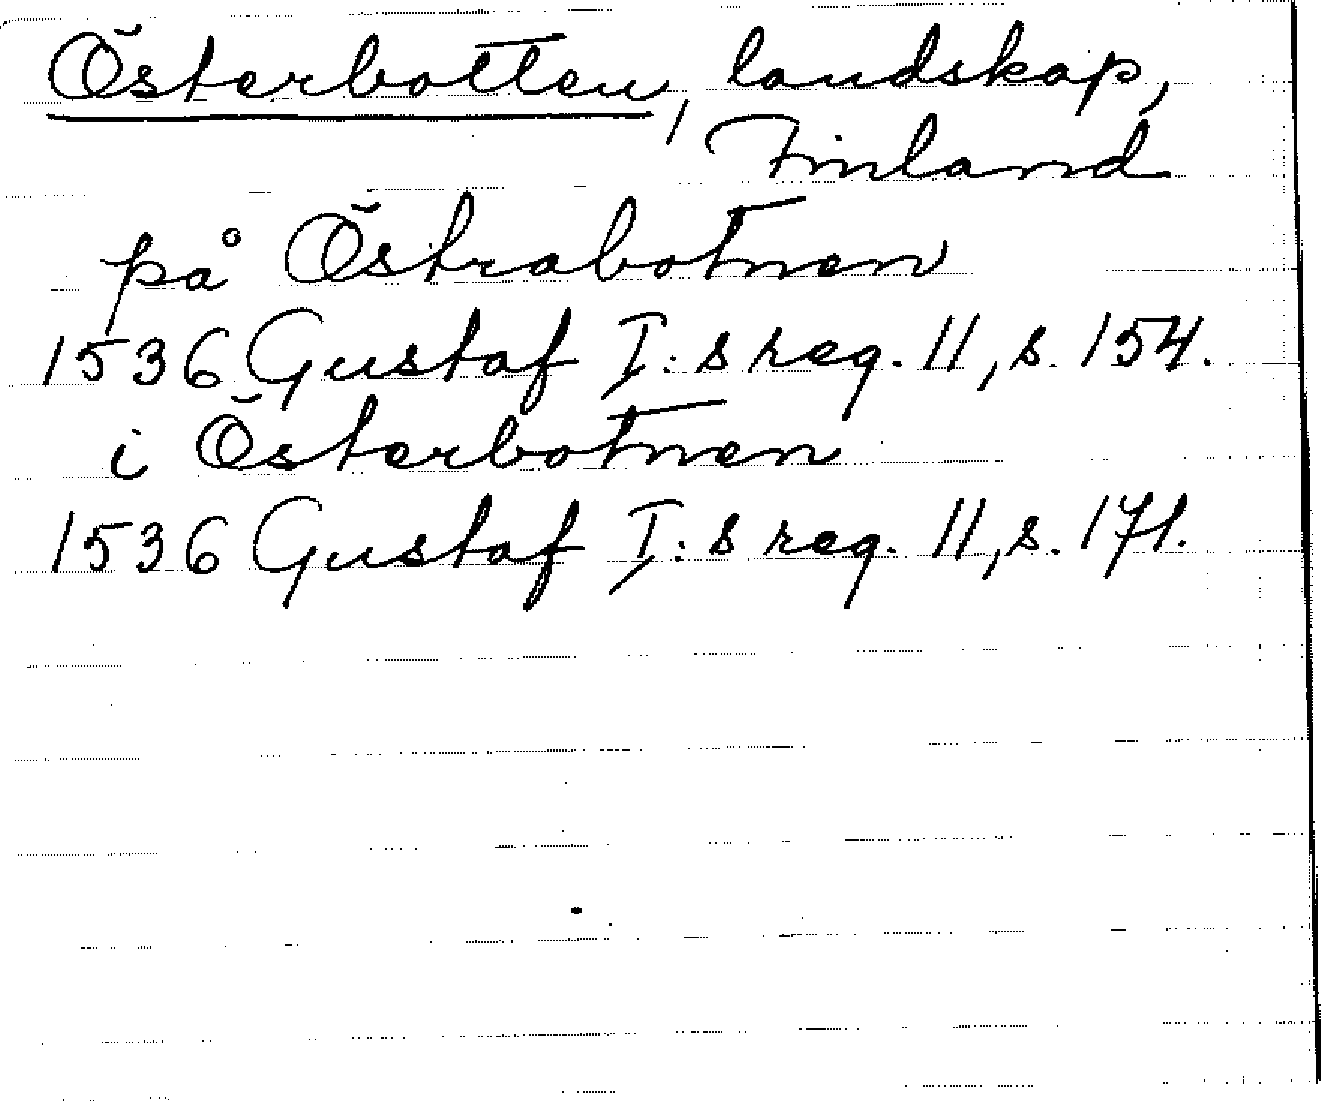 Österbotten, landskap,
Finland
på Östrabotnen
1536 Gustaf I:s reg. 11, s. 154.
i Österbotnen
1536 Gustaf I:s reg. 11, s. 171.